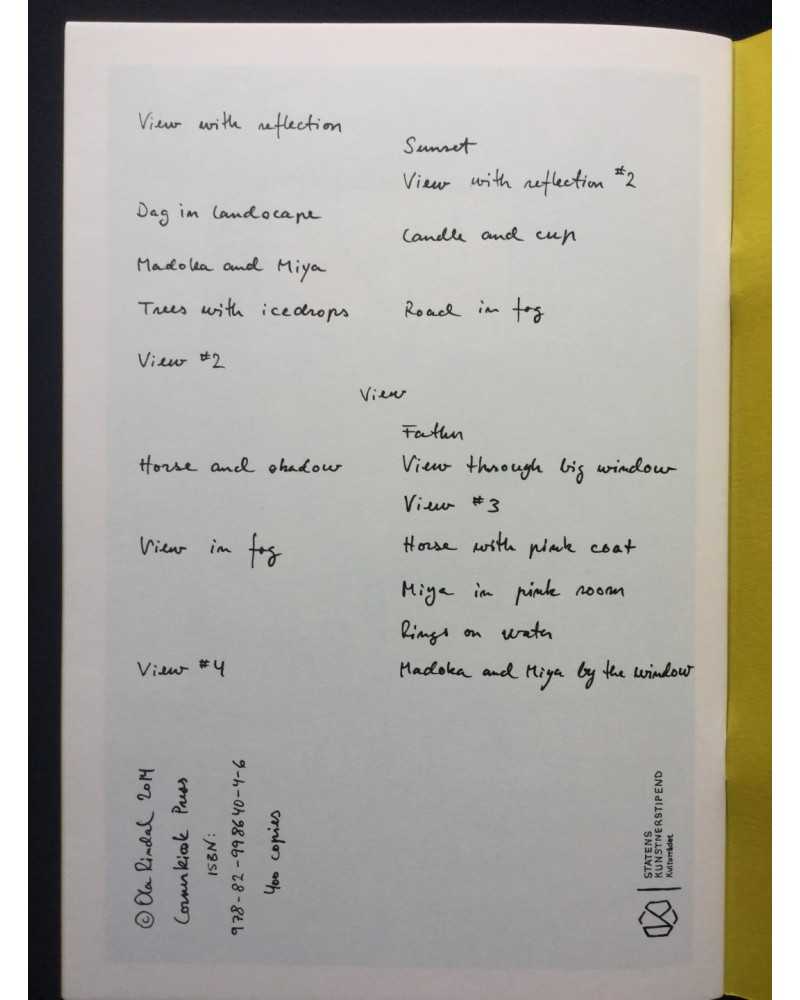 View with reflection
Sunset
View with reflection #2
Dag in landscape
Candle and cup
Madoka and Miya
Trees with icedrops
Road in fog
View #2
View
Father
Horse and shadow
View through big window
View #3
View in fog
Horse with pink coat
Miya in pink room
Rings on water
View #4
Madoka and Miya by the window
© Ola Rindal 2014
Cornerkiosk Press
ISBN:
978-82-998640-4-6
400 copies
STATENS
KUNSTNERSTIPEND
Kulturrådet